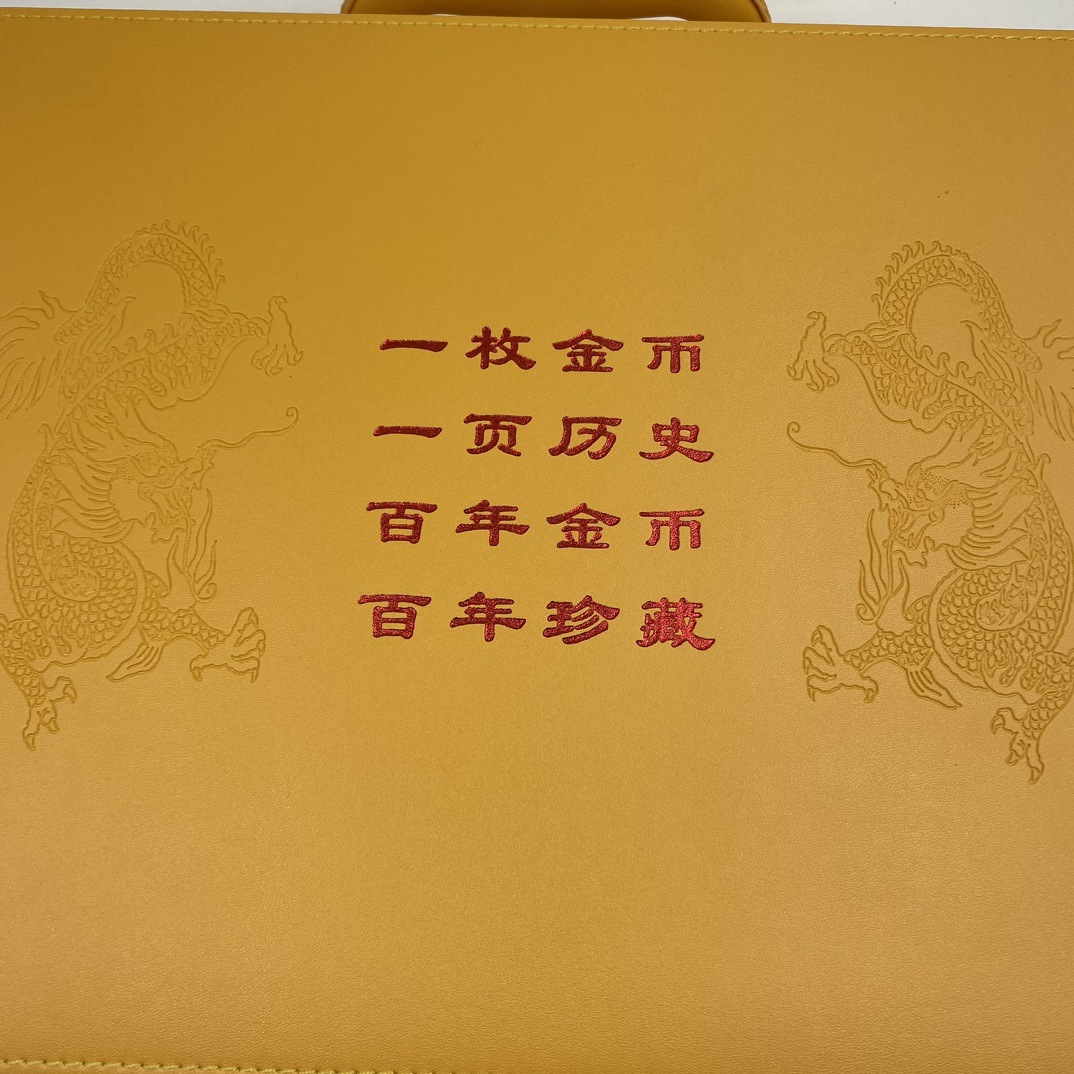 一枚金币
一页历史
百年金币
百年珍藏